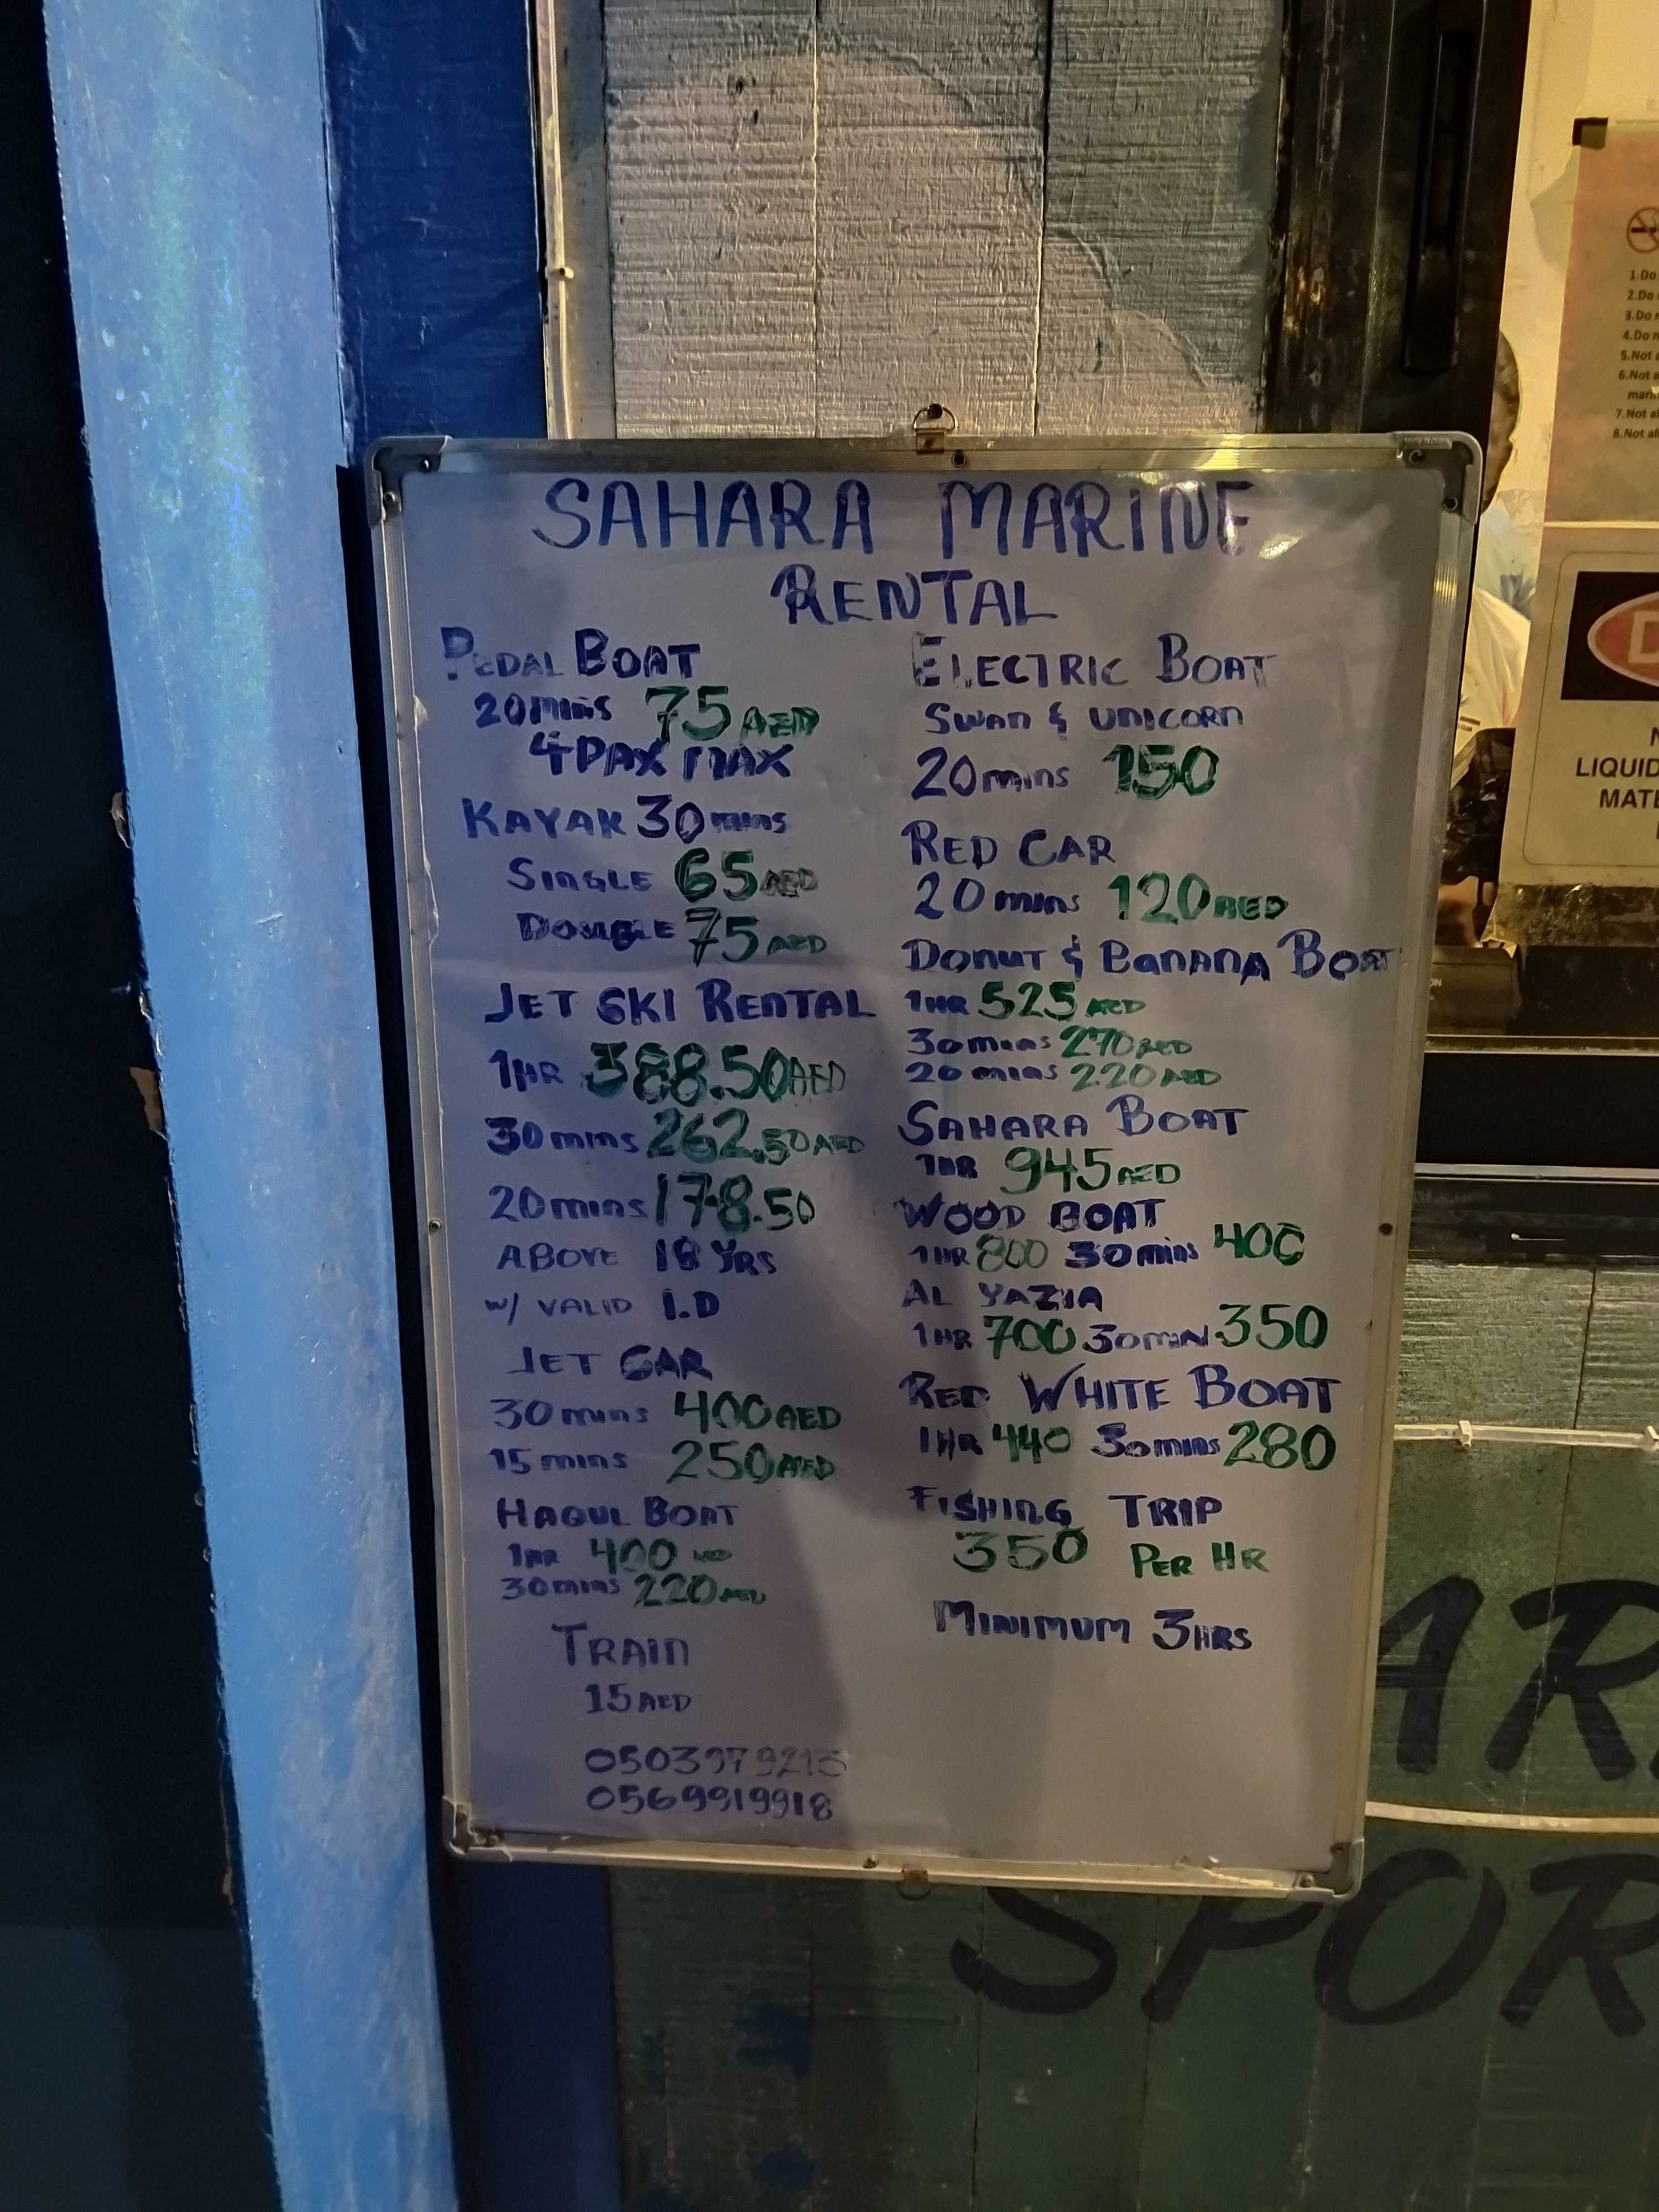 SAHARA MARINE
RENTAL
PEDAL BOAT
20mins 75 AED
4 PAX MAX
KAYAK 30 mins
SINGLE 65 AED
DOUBLE 75 AED
JET SKI RENTAL
1HR 388.50 AED
30 mins 262.50 AED
20 mins 178.50
ABOVE 18 YRS
w/ VALID I.D
JET CAR
30 mins 400 AED
15 mins 250 AED
HAQUL BOAT
1HR 400 AED
30 mins 220 AED
TRAIN
15 AED
0503979213
0569919918
ELECTRIC BOAT
SWAN & UNICORN
20 mins 150
RED CAR
20 mins 120 AED
DONUT & BANANA BOAT
1HR 525 AED
30 mins 270 AED
20 mins 220 AED
SAHARA BOAT
1HR 945 AED
WOOD BOAT
1HR 800 30 mins 400
AL YAZIA
1HR 700 30 MIN 350
RED WHITE BOAT
1HR 440 30 mins 280
FISHING TRIP
350 PER HR
MINIMUM 3 HRS
1.Do
2.Do
3.Do
4.Do
5.Not
6.Not
7.Not
8.Not
LIQUID
SPOR